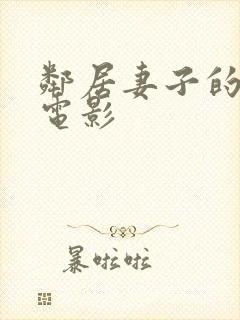 鄰居妻子的
電影
暴啦啦